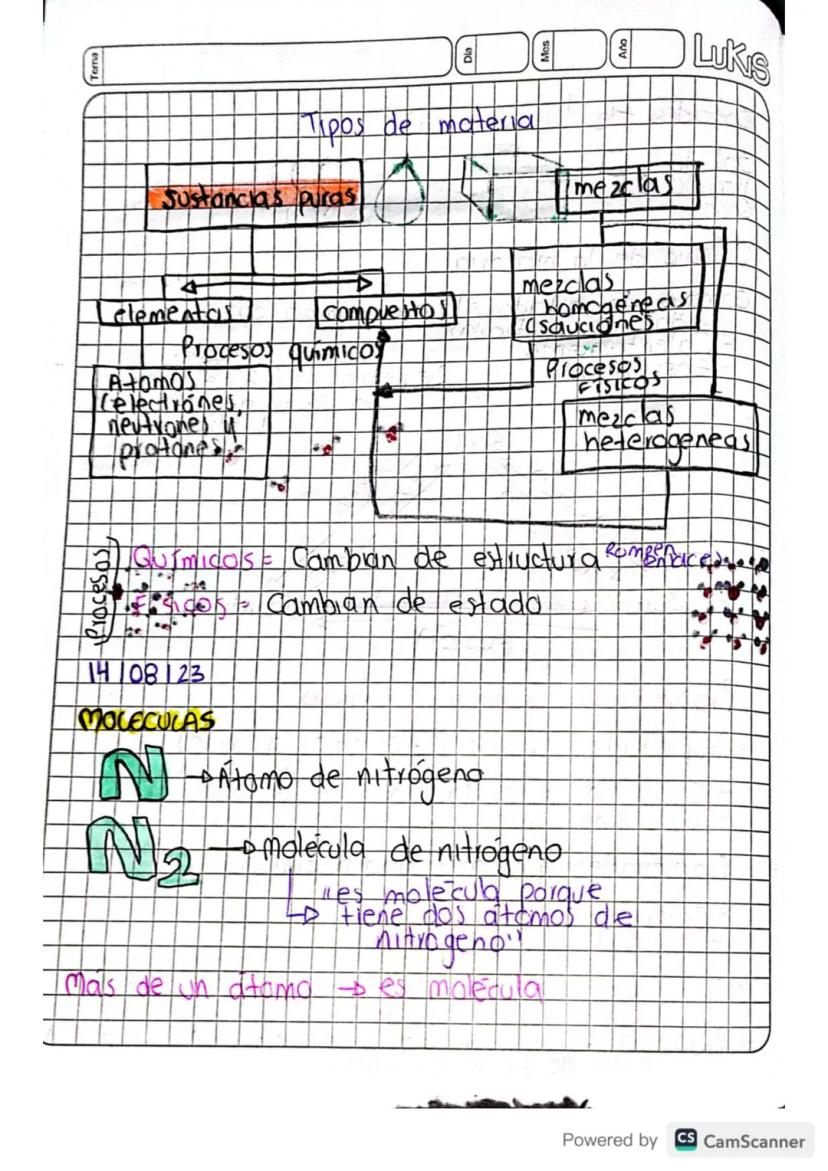 Tema
Dia
Mes
Año
LUKIS
Tipos de materia
sustancias puras
mezclas
elementos
compuestos
mezclas
homogéneas
(sauciones
Procesos químicos
Procesos
Físicos
Atomos
(electrónes,
neutrones y
protones
mezclas
heterogeneas
Procesos
Químicos = Cambian de estructura Rompen enlaces
Físicos = Cambian de estado
14/08/23
MOLECULAS
N → Átomo de nitrógeno
N2 → molécula de nitrógeno
"es molécula porque
tiene dos átomos de
nitrogeno"
Más de un átomo → es molécula
Powered by CS CamScanner